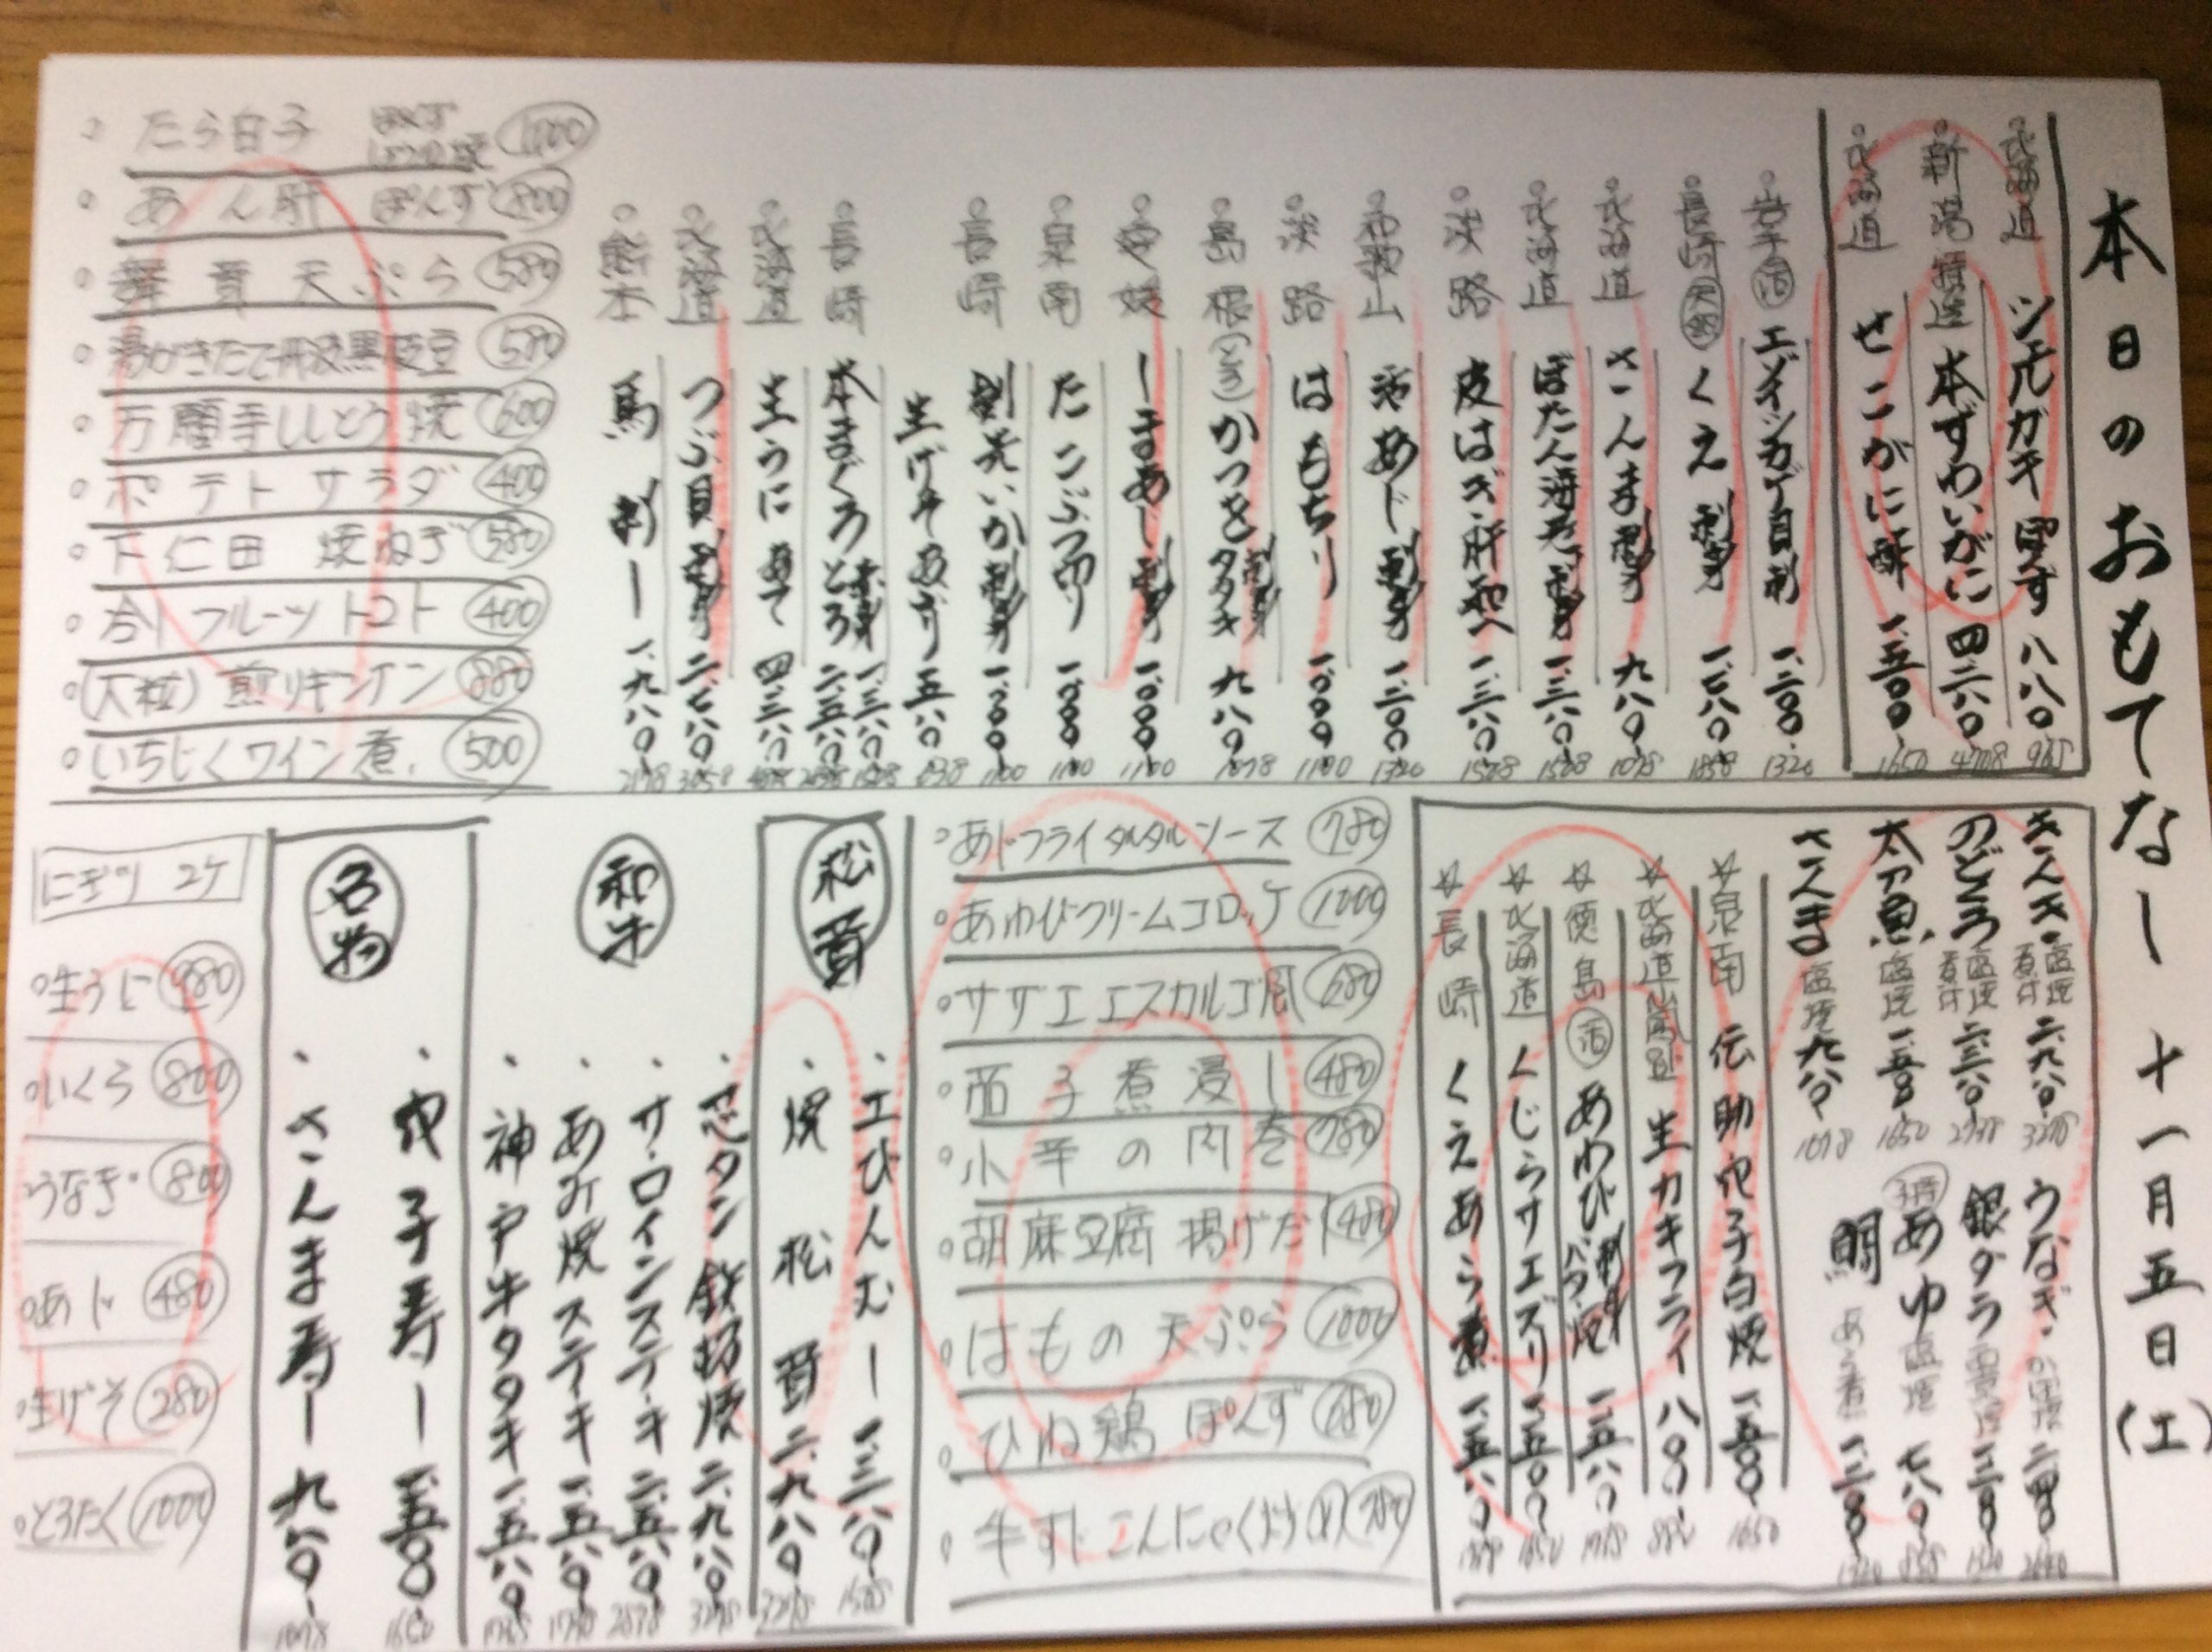 本日のおもてなし 十一月五日(土)
北海道 シェルガキ ぽんず 八八〇 968
新潟 特選 本ずわいがに 四二八〇 4708
北海道 せこがに酢 一、五〇〇 1650
岩手 活 エゾイシカゲ貝刺 一、二〇〇 1320
長崎 天然 くえ 刺身
北海道 さんま 刺身 九八〇 1078
北海道 ぼたん海老 刺身 一、三八〇 1518
淡路 皮はぎ 肝和へ 一、三八〇 1518
和歌山 活あじ 刺身 一、二〇〇 1320
淡路 はもちり 一、〇〇〇 1100
島根 かつを 刺身 タタキ 九八〇 1078
愛媛 し
あじ 刺身 一、〇〇〇 1100
泉南 たこぶつ切り 一、〇〇〇 1100
長崎 剣先いか 刺身 一、〇〇〇 1100
生げそあぶり 五八〇 638
長崎 本まぐろ 赤身 一、三八〇 1518
とろ 二、五八〇
北海道 生うに あて 四、三八〇
北海道 つぶ貝 刺身 二、七八〇 3058
熊本 馬刺し 一、九八〇 2178
たら白子 ぽんず 1000
あん肝 ぽんず 800
舞茸天ぷら 580
湯がきたて丹波黒枝豆 580
万願寺ししとう焼 600
ポテトサラダ 400
下仁田 焼ねぎ 580
フルーツトマト 400
(大粒)煎りギンナン 880
いちじくワイン煮 500
きんき 塩焼 煮付 二、九八〇 3278
のどぐろ 塩焼 煮付
太刀魚 塩焼 一、五〇〇 1650
さんま 塩焼 九八〇 1078
うなぎ かば焼 二、四〇〇 2640
銀ダラ 西京焼 一、二〇〇 1320
子持 あゆ 塩焼 七八〇 858
鯛 あら煮 一、二〇〇 1320
泉南 伝助穴子白焼 一、五〇〇 1650
北海道 生カキフライ 八〇〇 880
徳島 活 あわび 刺身 バター焼
北海道 くじらサエズリ 一、五〇〇 1650
長崎 くえあら煮 一、五八〇
あじフライタルタルソース 780
あわびクリームコロッケ 1000
サザエエスカルゴ風 680
茄子煮浸し 480
小芋の肉巻 780
胡麻豆腐 揚げだし 480
はもの天ぷら 1000
ひね鶏 ぽんず 680
牛すじこんにゃく
松茸
土びんむし 一、三八〇 1518
焼松茸 二、九八〇 3278
和牛
芯タン 鉄板焼 二、九八〇 3278
サーロインステーキ 二、五八〇
あみ焼ステーキ 一、五八〇
神戸牛タタキ 一、五八〇
名物
穴子寿し 一、五〇〇 1650
さんま寿し 九八〇 1078
にぎり 2ケ
生うに 980
いくら 800
うなぎ 800
あじ 480
生げそ 280
とろたく 1000